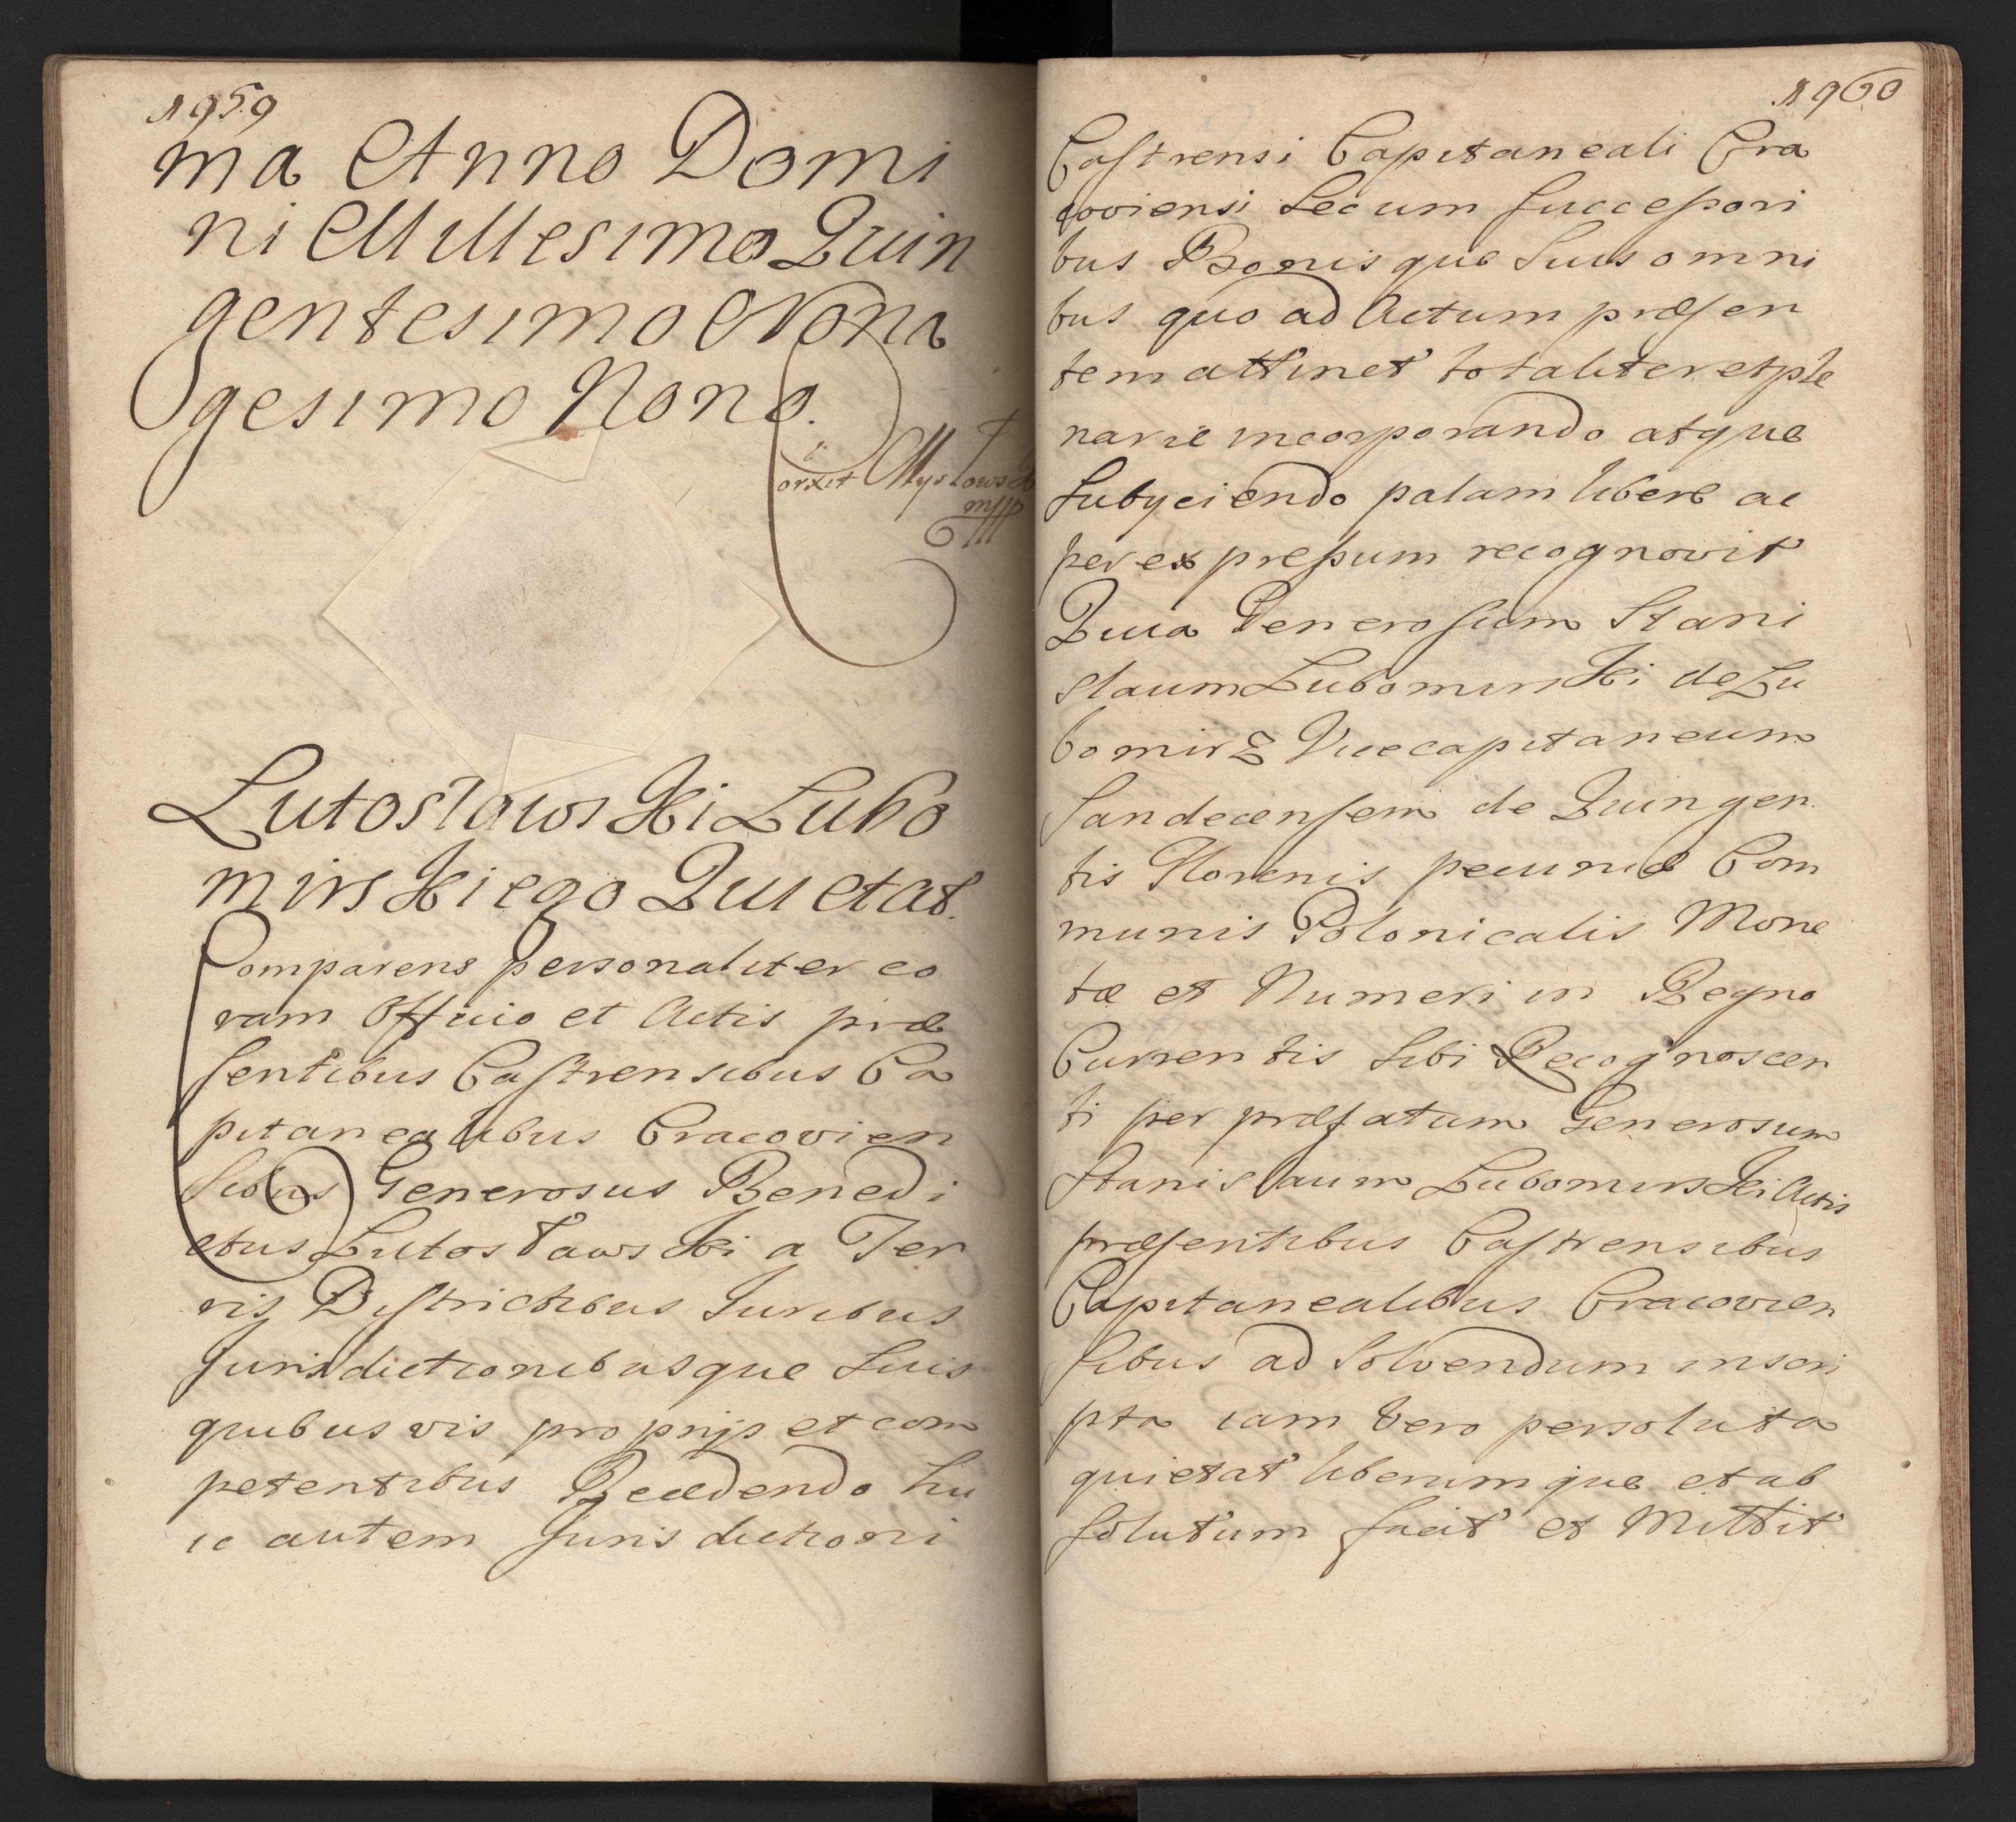 1959
ma Anno Domi
ni Millesimo Quin
gentesimo Nona
gesimo Nono.
LutosławsKi Lubo
mirsKiego Quietat.
Comparens personaliter co
ram Officio et Actis præ
sentibus Castrensibus Ca
pitanealibus Cracovien
sibus Generosus Benedi
ctus LutosławsKi a Ter
ris Districtibus Iuribus
Iurisdictionibusque Suis
quibusvis proprijs et com
petentibus Recedendo hu
ic autem Jurisdictioni
1960
Castrensi Capitaneali Cra
coviensi Se cum successori
bus Bonisque Suis omni
bus quo ad Actum præsen
tem attinet totaliter et ple
narie incorporando atque
Subyciendo palam libere ac
per expressum recognovit
Quia Generosum Stani
slaum LubomirsKi de Lu
bomirz Vicecapitaneum
Sandecensem de Quingen
tis Florenis pecuniæ Com
munis Polonicalis Mone
tæ et Numeri in Regno
Currentis Sibi Recognoscen
ti per præfatum Generosum
Stanislaum LubomirsKi Actis
præsentibus Castrensibus
Capitanealibus Cracovien
sibus ad Solvendum inscri
pta iam vero persoluta
quietat liberumque et ab
solutum facit et Mittit